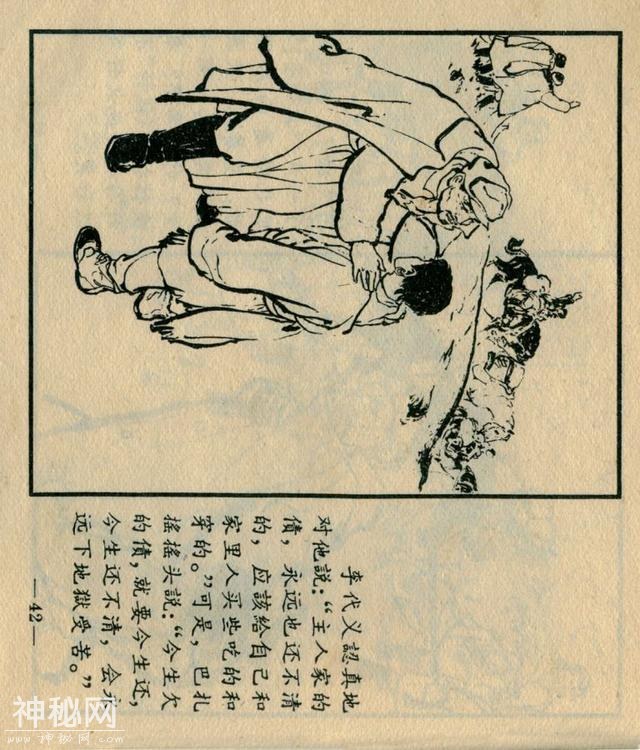 李代义認真地
对他説：“主人家的
债，永远也还不清
的，应該給自己和
家里人买些吃的和
穿的。”可是，巴扎
搖搖头説：“今生欠
的债，就要今生还，
今生还不清，会永
远下地獄受苦。”
—42—
神秘网
www.神秘网.com